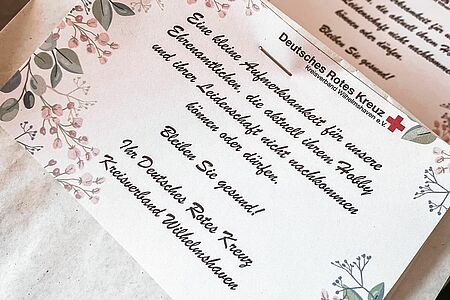 Deutsches Rotes Kreuz
Kreisverband Wilhelmshaven e.V.
Eine kleine Aufmerksamkeit für unsere
Ehrenamtlichen, die aktuell ihrem Hobby
und ihrer Leidenschaft nicht nachkommen
können oder dürfen.
Bleiben Sie gesund!
Ihr Deutsches Rotes Kreuz
Kreisverband Wilhelmshaven
Aufmerksamkeit für unsere
die aktuell ihrem Hobby
Leidenschaft nicht nachkommen
können oder dürfen.
Bleiben Sie gesund!